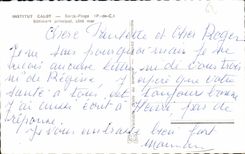 INSTITUT CALOT — Berck-Plage (P.-de-C.)
Bâtiment principal, côté mer
Chère Paulette et Cher Roger
pourquoi mais je ne
reçois aucune de vous trois
ni de Régine, J'espère que votre
santé à tous est toujours bonne
J'ai aussi écrit à pas de
réponse,
Je vous embrasse bien fort
Maman